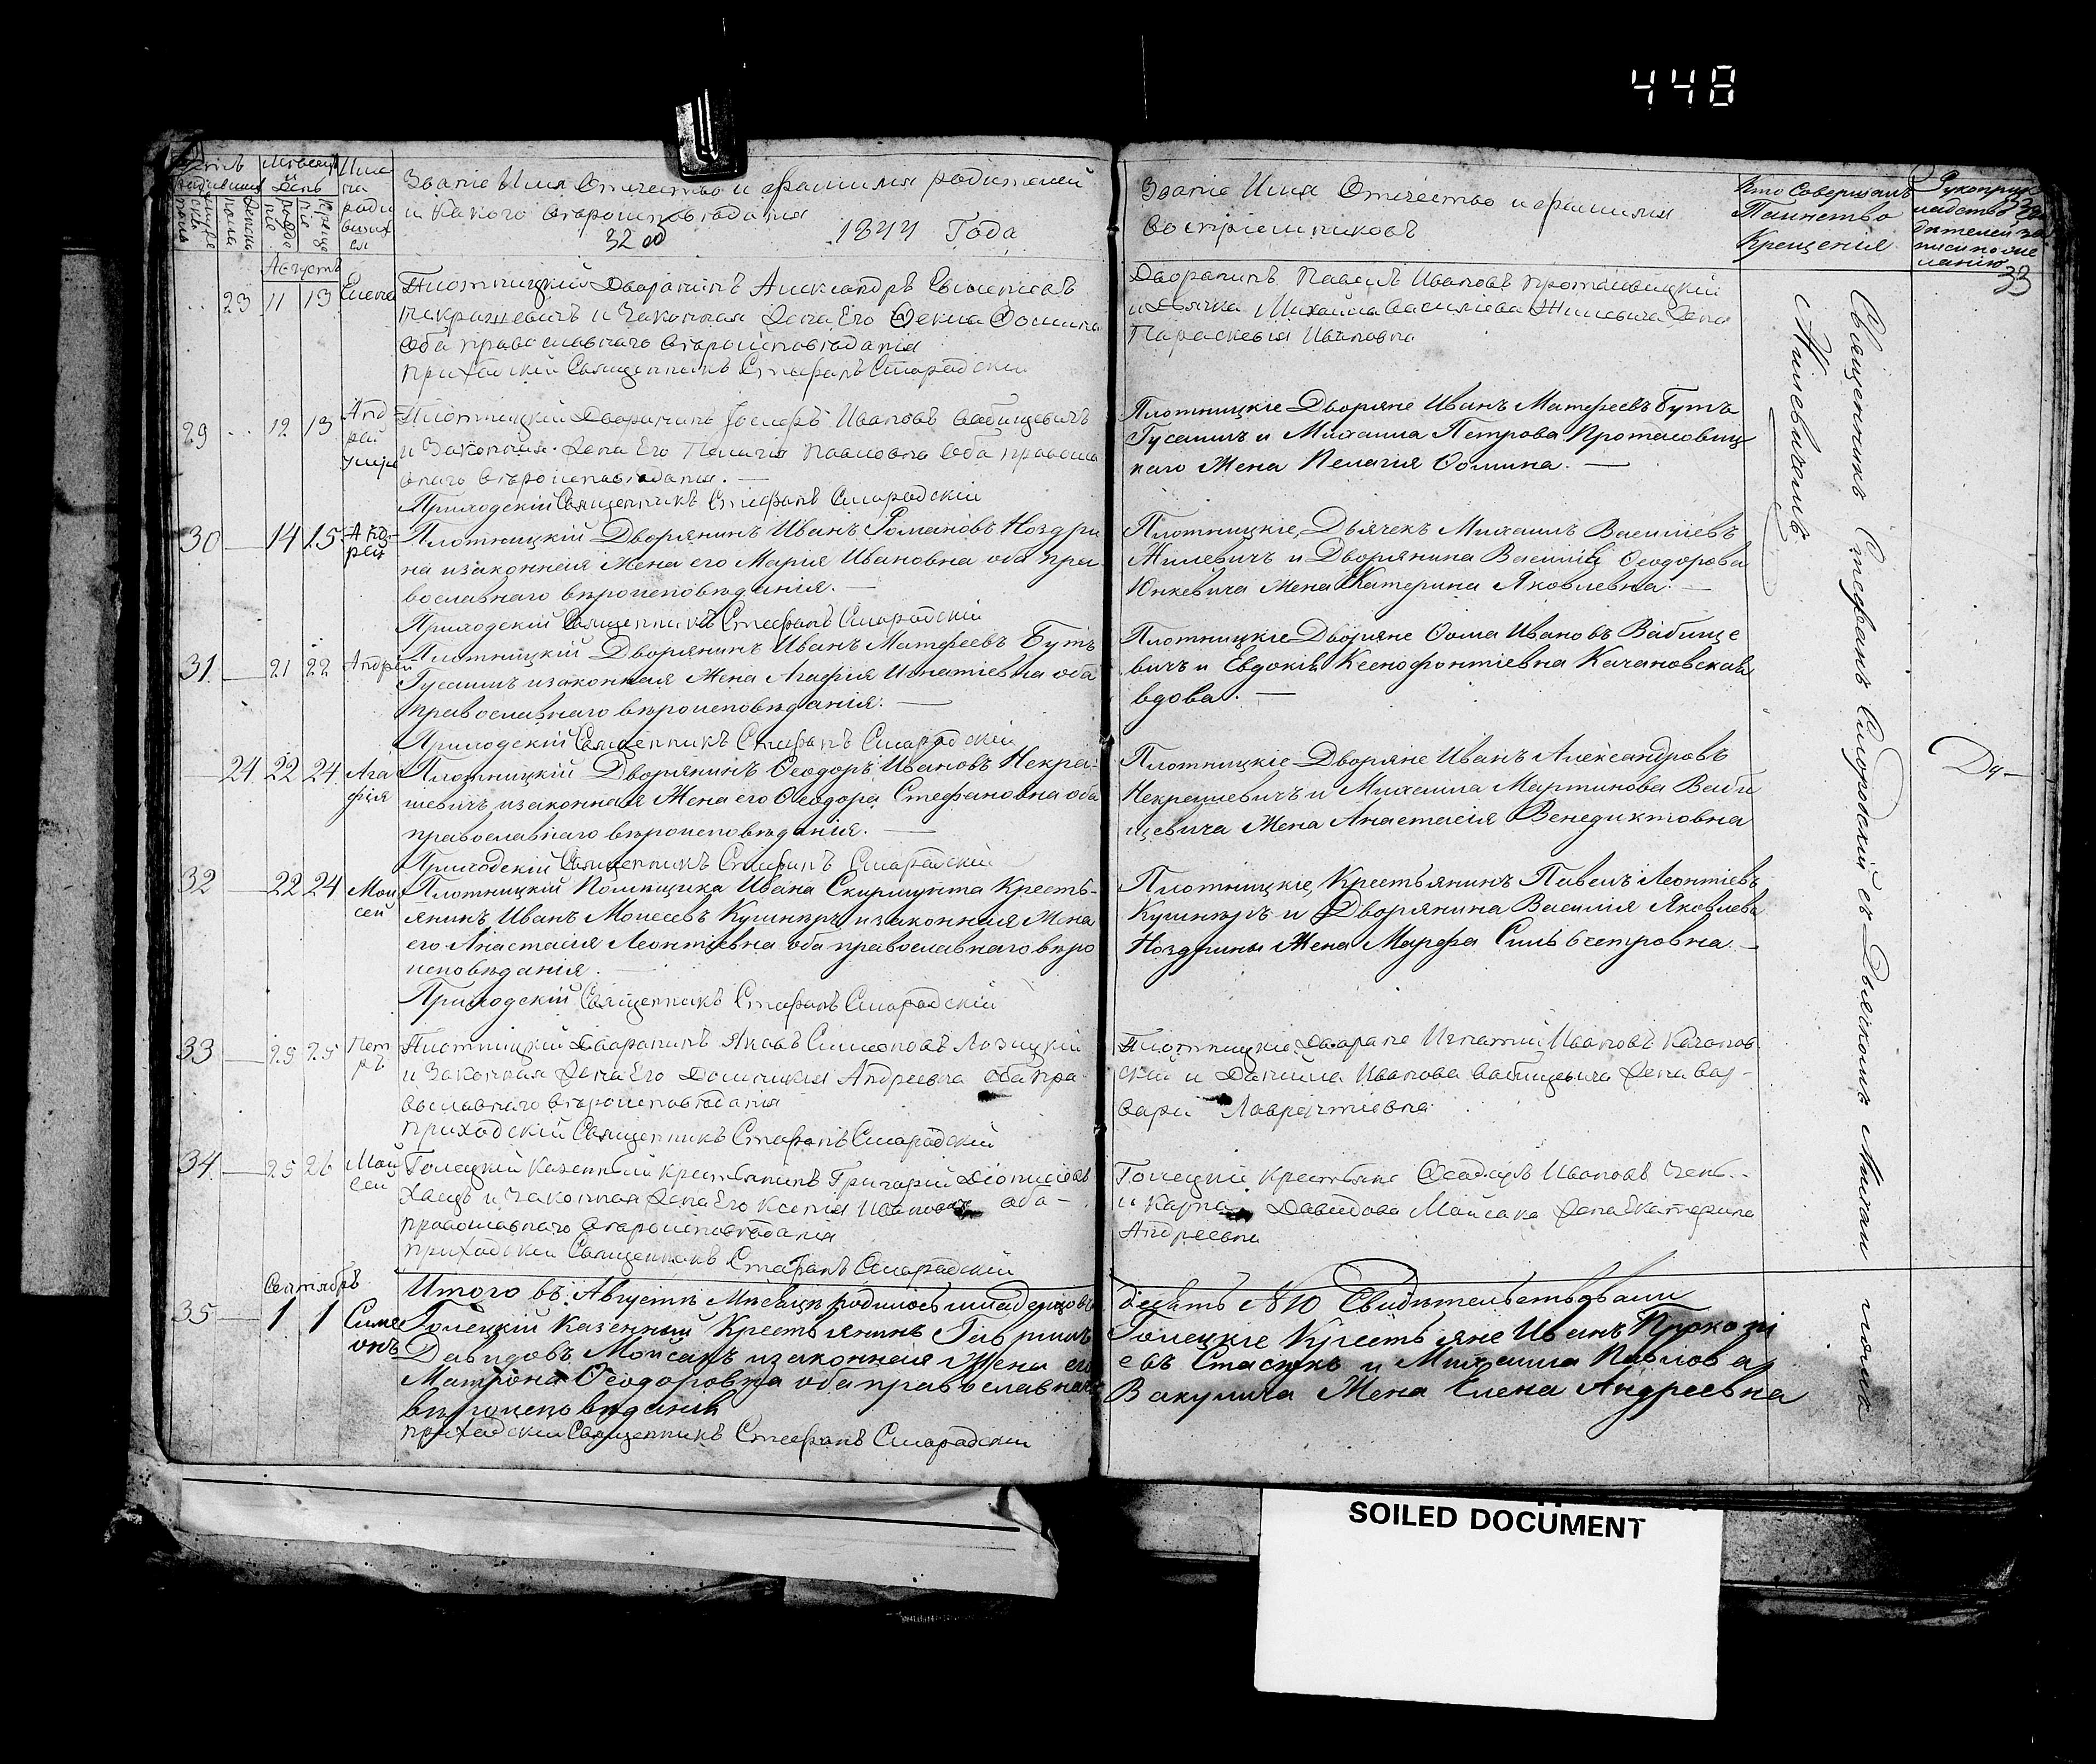 448
Званіе Имя Отчество и фамилия родителей
и Какого вѣроисповѣданія
1844 Года
Августъ
23 11 13 Елена
Плотницкій Дворянинъ Александръ
Некрашевичъ и Законная Жена Его Ѳекла Ѳомина
оба православнаго вѣроисповѣданія
приходскій Священникъ Стефанъ Смародскій
29 12 13
Плотницкій Дворянинъ Іосифъ Ивановъ Вабищевичъ
и Законная Жена Его Пелагія Павловна оба правосла
внаго вѣроисповѣданія. —
Приходскій Священникъ Стефанъ Смародскій
30 — 14 15 Анд-
рей
Плотницкій Дворянинъ Иванъ Романовъ Ноздри
на изаконная Жена его Мария Ивановна оба пра-
вославнаго вѣроисповѣданія. —
Приходскій Священникъ Стефанъ Смародскій
31. — 21 22 Андрей
Плотницкій Дворянинъ Иванъ Матфеевъ Бутъ
Гусаимъ изаконная Жена Агафія Игнатіевна оба
православнаго вѣроисповѣданія. —
Приходскій Священникъ Стефанъ Смародскій
24. 22 24 Ага
фія
Плотницкій Дворянинъ Ѳеодоръ Ивановъ Некра-
шевичъ изаконная Жена его Ѳеодора Стефановна оба
православнаго вѣроисповѣданія. —
Приходскій Священникъ Стефанъ Смародскій
32 — 22 24 Мои
сей
Плотницкій Помѣщика Ивана Скирмунта Кресть-
янинъ Иванъ Моисеевъ Кушнѣръ изаконная Жена
его Анастасія Леонтіевна оба православнаго вѣро
исповѣданія. —
Приходскій Священникъ Стефанъ Смародскій
33 — 25 25 Пет
ръ
Плотницкій Дворянинъ Яковъ Симеоновъ Лозицкій
и Законная Жена Его Домникия Андреевна оба пра
вославнаго вѣроисповѣданія
приходскій Священникъ Стефанъ Смародскій
34. — 25 26 Мой
сей
Голецкій Казенный крестьянинъ Григорий Діонисіевъ
и Законная Жена Его Ксенія Ивановна оба —
православнаго вѣроисповѣданія
приходскій Священникъ Стефанъ Смародскій
Итого въ Августѣ Мѣсяцѣ родилось младенцовъ
Сентябрь
35 — 1 1 Симе
онъ
Голецкій Казенный Крестьянинъ Гавриилъ
Давидовъ Мойсакъ изаконная Жена его
Матрона Ѳеодоровна оба православнаго
вѣроисповѣданія
приходскій Священникъ Стефанъ Смародскій
Званіе Имя Отчество и фамилия
Воспріемниковъ
Кто Совершалъ
Таинство
Крещенія
33
Дворянинъ Павелъ Ивановъ Протасовицкій
и Дьячка Михаила Василіева Жилевича Жена
Параскевія Ивановна
Плотницкіе Дворяне Иванъ Матфеевъ Бутъ
Гусаимъ и Михаила Петрова Протасовиц
каго Жена Пелагія Ѳомина. —
Плотницкіе, Дьячекъ Михаилъ Василіевъ
Жилевичъ и Дворянина Василія Ѳеодорова
Юнкевича Жена Катерина Яковлевна. —
Плотницкіе Дворяне Ѳома Ивановъ Вабище
вичъ и Евдокія Ксенофонтіевна Качановская
вдова. —
Плотницкіе Дворяне Иванъ Александровъ
Некрашевичъ и Михаила Мартинова Ваби
щевича Жена Анастасія Венедиктовна
Плотницкіе, Крестьянинъ Павелъ Леонтіевъ
Кушнѣръ и Дворянина Василія Яковлева
Ноздрины Жена Марфа Сильвестровна. —
Плотницкіе Дворяне Игнатій Ивановъ Качанов
скій и Даниила Иванова Вабищевича Жена Вар-
вара Лаврентіевна
Голецкій крестьяне Ѳеодоръ Ивановъ
и Карпа Давидова Мойсака Жена Екатерина
Андреевна
десять N 10 Свидѣтельствовали
Голецкіе Крестьяне Иванъ Прокопі
евъ Стасюкъ и Михаила Павлова
Вакулича Жена Елена Андреевна
Священникъ Стефанъ Смародскій съ Дьячкомъ
Жилевичемъ
SOILED DOCUMENT